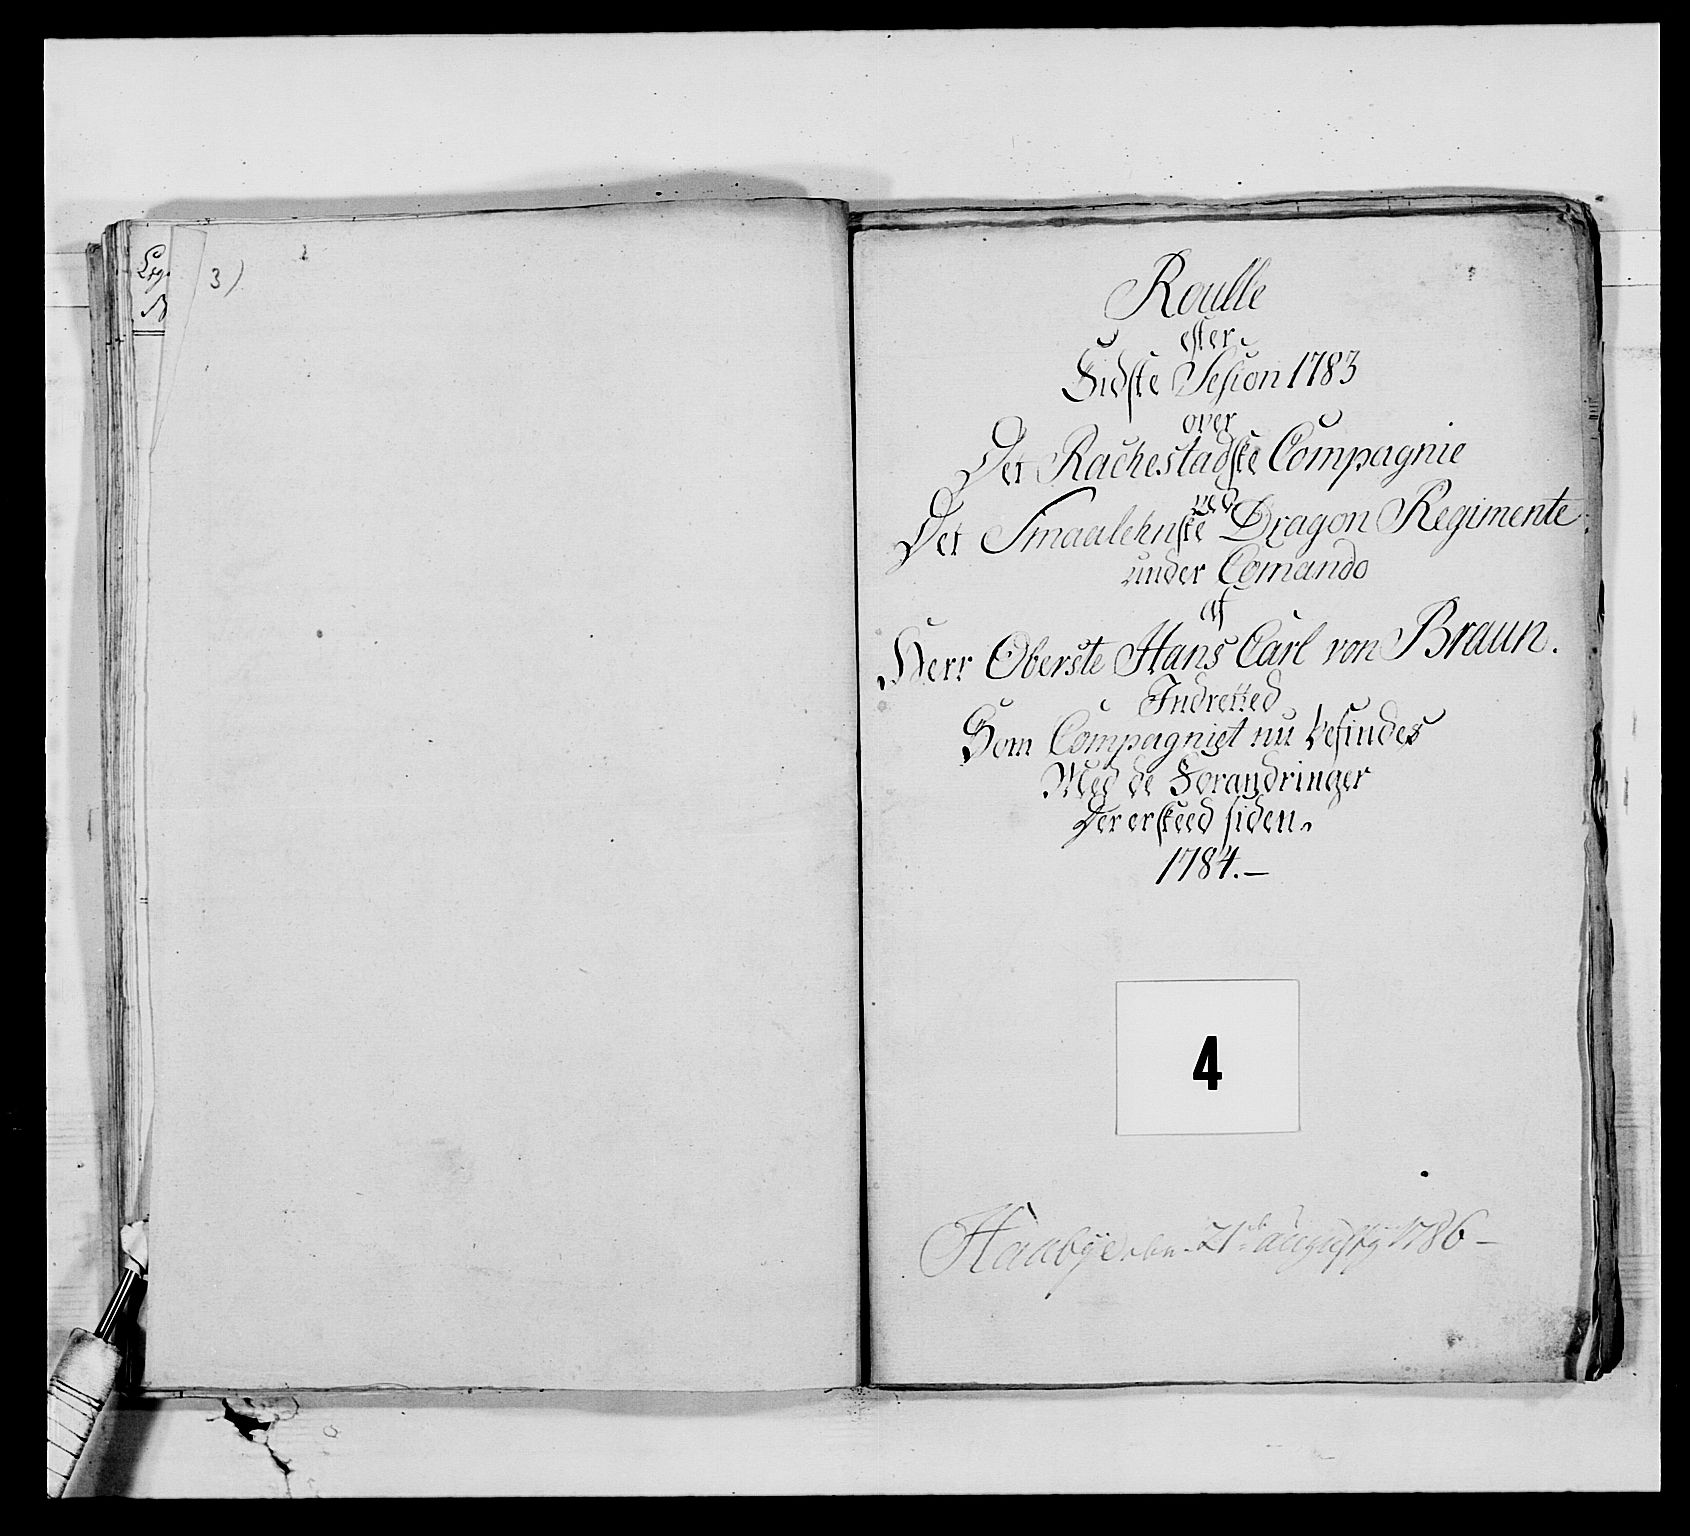 3)
Roulle
efter
Sidste Sesion 1783
over
Det Rachestadske Compagnie
ved
Det Smaalehnske Dragon Regimente
under Comando
af
Herr Oberste Hans Carl von Braun.
Indretted
Som Compagniet nu befindes
Med de Forandringer
Der er skeed siden.
1784.—
4
Haabye den 21de augusty 1786 —